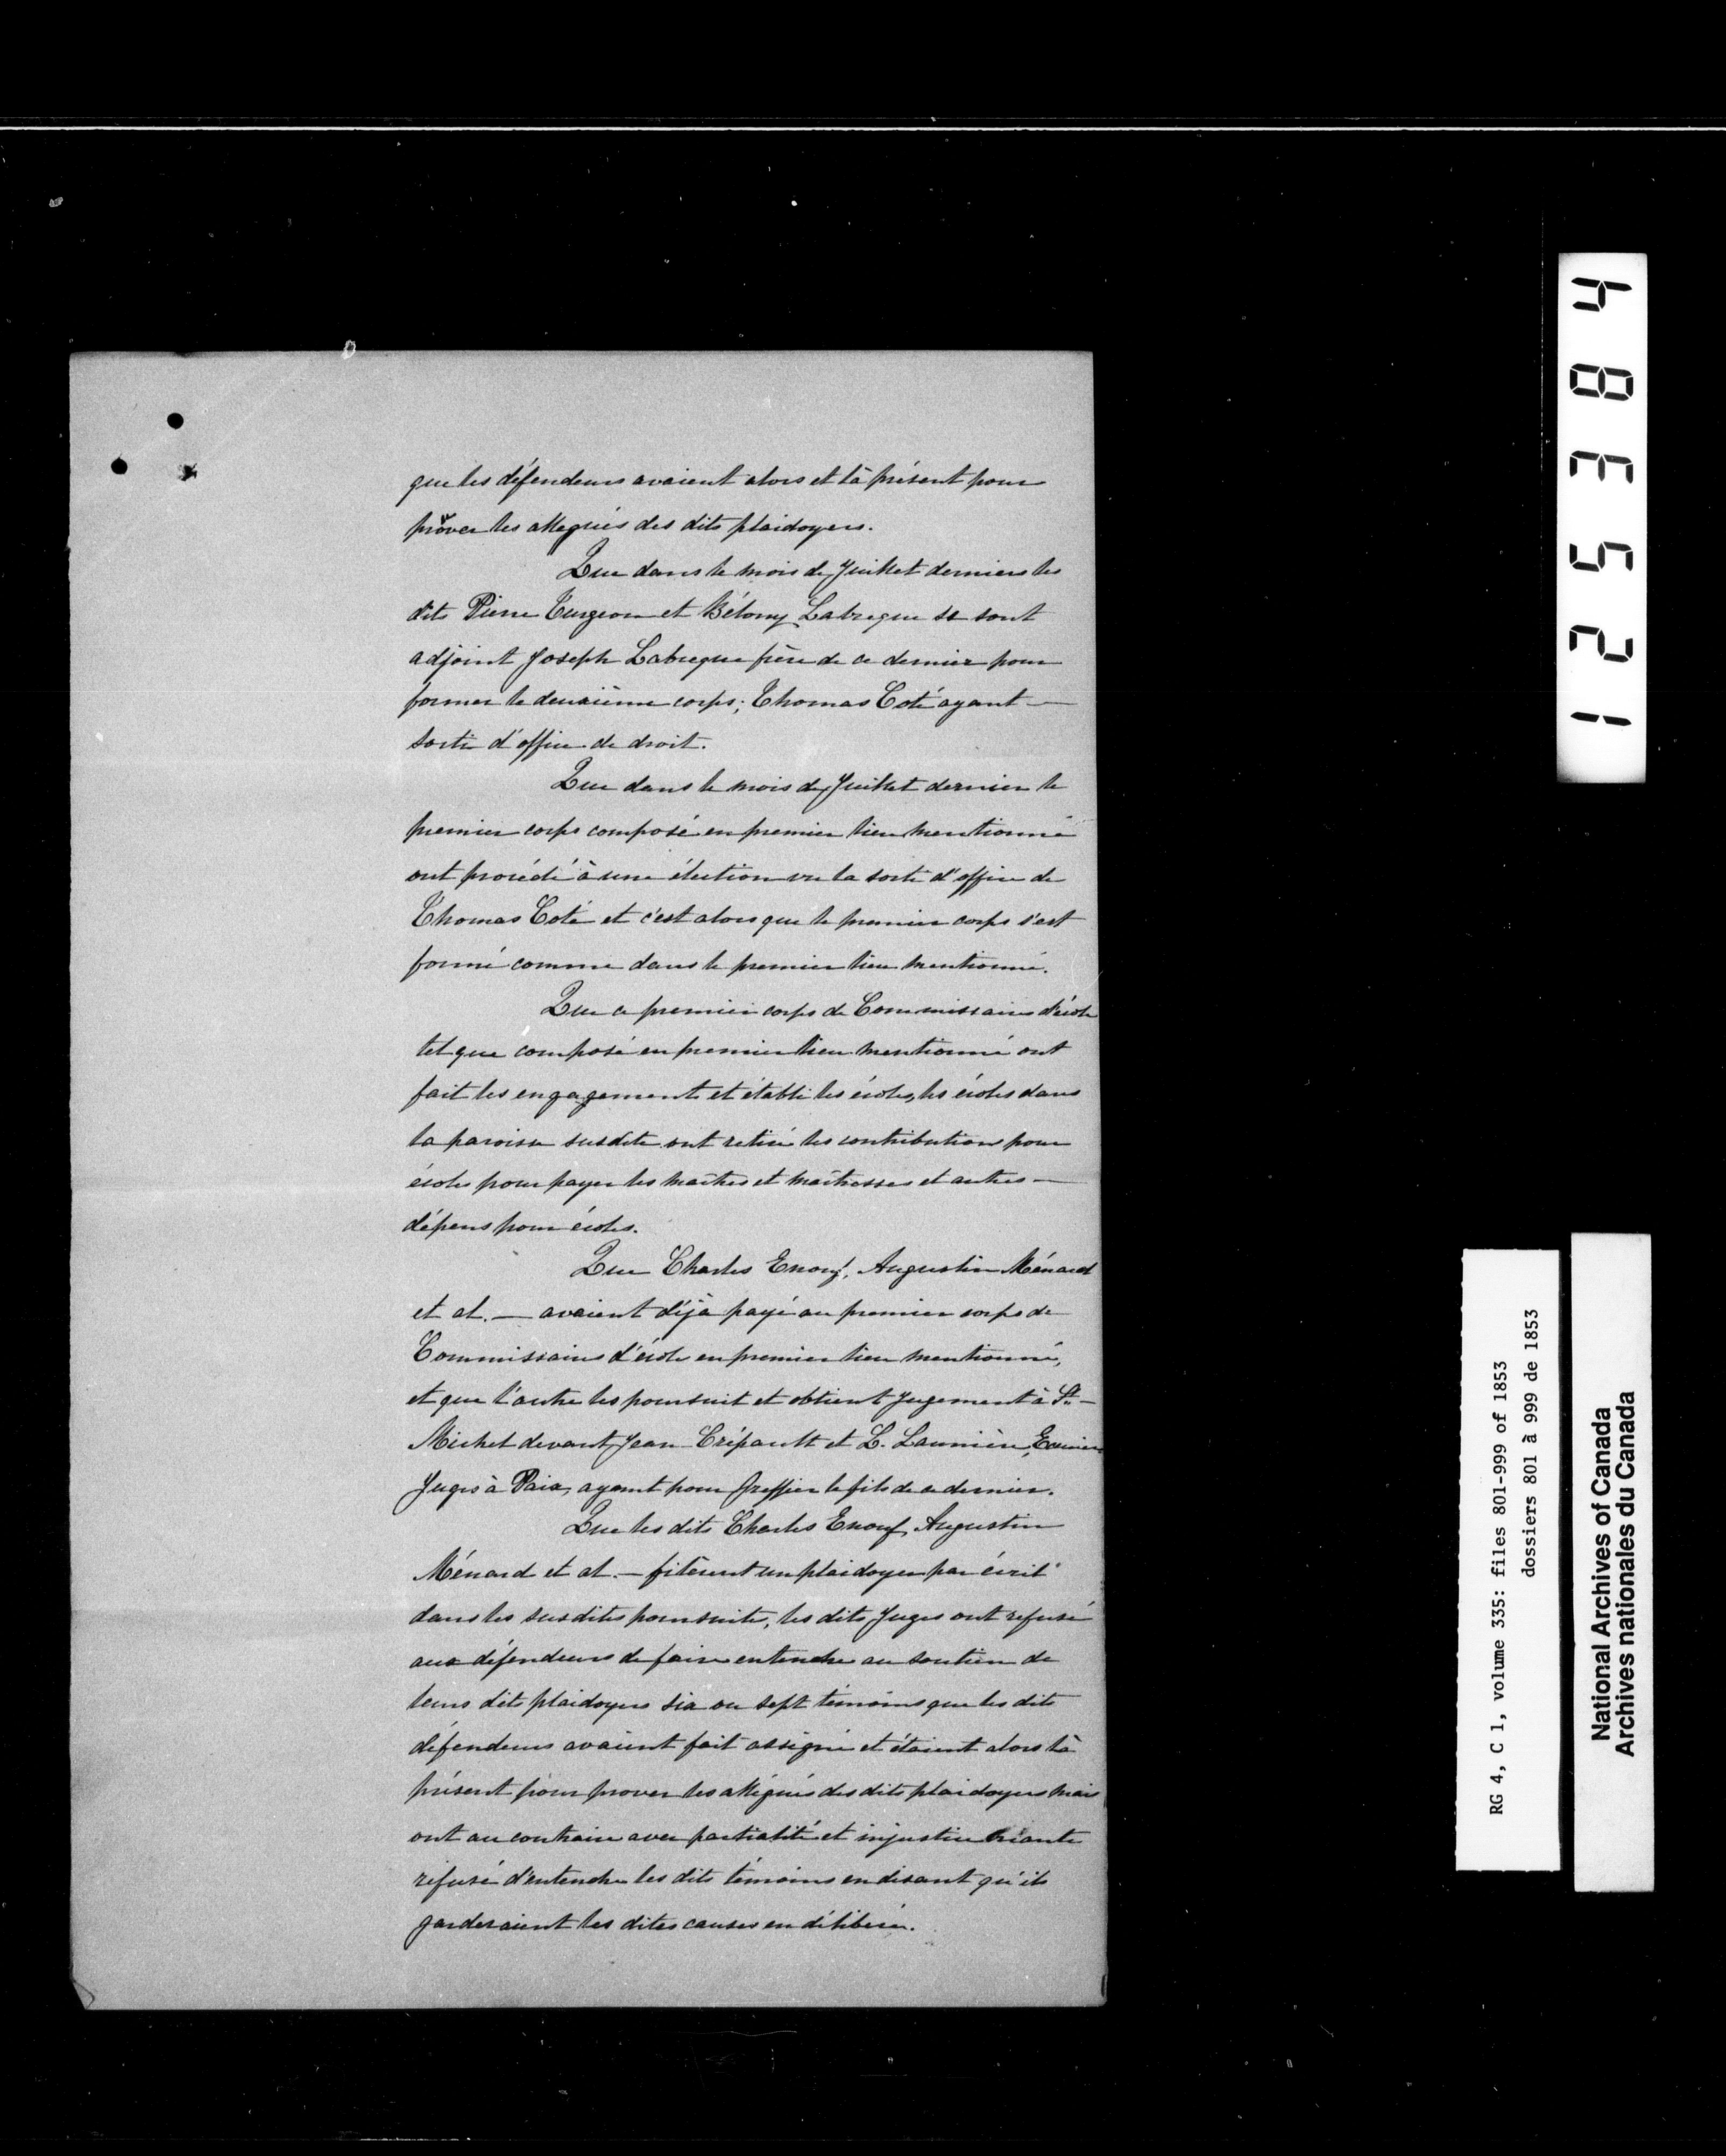 que les défendeurs avaient alors et là présent pour
prover les allegués des dits plaidoyers.
Que dans le mois de Juillet derniers les
dits Pierre Turgeon et Bélony Labreque se sont
adjoint Joseph Labreque frère de ce dernier pour
former le deuxième corps; Thomas Coté ayant —
sorti d'office de droit.
Que dans le mois de Juillet dernier le
premier corps composé en premier lieu mentionné
ont procédé à une élection vu la sortie d'office de
Thomas Coté et c'est alors que le premier corps s'est
formé comme dans le premier lieu mentionné.
Que ce premier corps de Commissaires d'école
tel que composé en premier lieu mentionné ont
fait les engagements et établi les écoles, les écoles dans
la paroisse susdite ont retiré les contributions pour
écoles pour payer les maîtres et maîtresses et autres —
dépens pour écoles.
Que Charles Enouf, Augustin Ménard
et al. — avaient déjà payé au premier corps de
Commissaires d'école en premier lieu mentionné,
et que l'autre les poursuit et obtient Jugement à St. —
Michel devant Jean Crépault et L. Launière, Ecuiers
Juges à Paix, ayant pour Greffier le fils de ce dernier.
Que les dits Charles Enouf, Augustin
Ménard et al. — filèrent un plaidoyer par écrit
dans les susdites poursuites, les dits Juges ont refusé
aux défendeurs de faire entendre au soutien de
leurs dits plaidoyers six ou sept témoins que les dits
défendeurs avaient fait assigné et étaient alors là
présent pour prover les allégués des dits plaidoyers mais
ont au contraire avec partialité et injustice criante
refusé d'entendre les dits témoins en disant qu'ils
garderaient les dites causes en délibéré.
1 2 5 3 8 4
RG 4, C 1, volume 335: files 801-999 of 1853
dossiers 801 à 999 de 1853
National Archives of Canada
Archives nationales du Canada